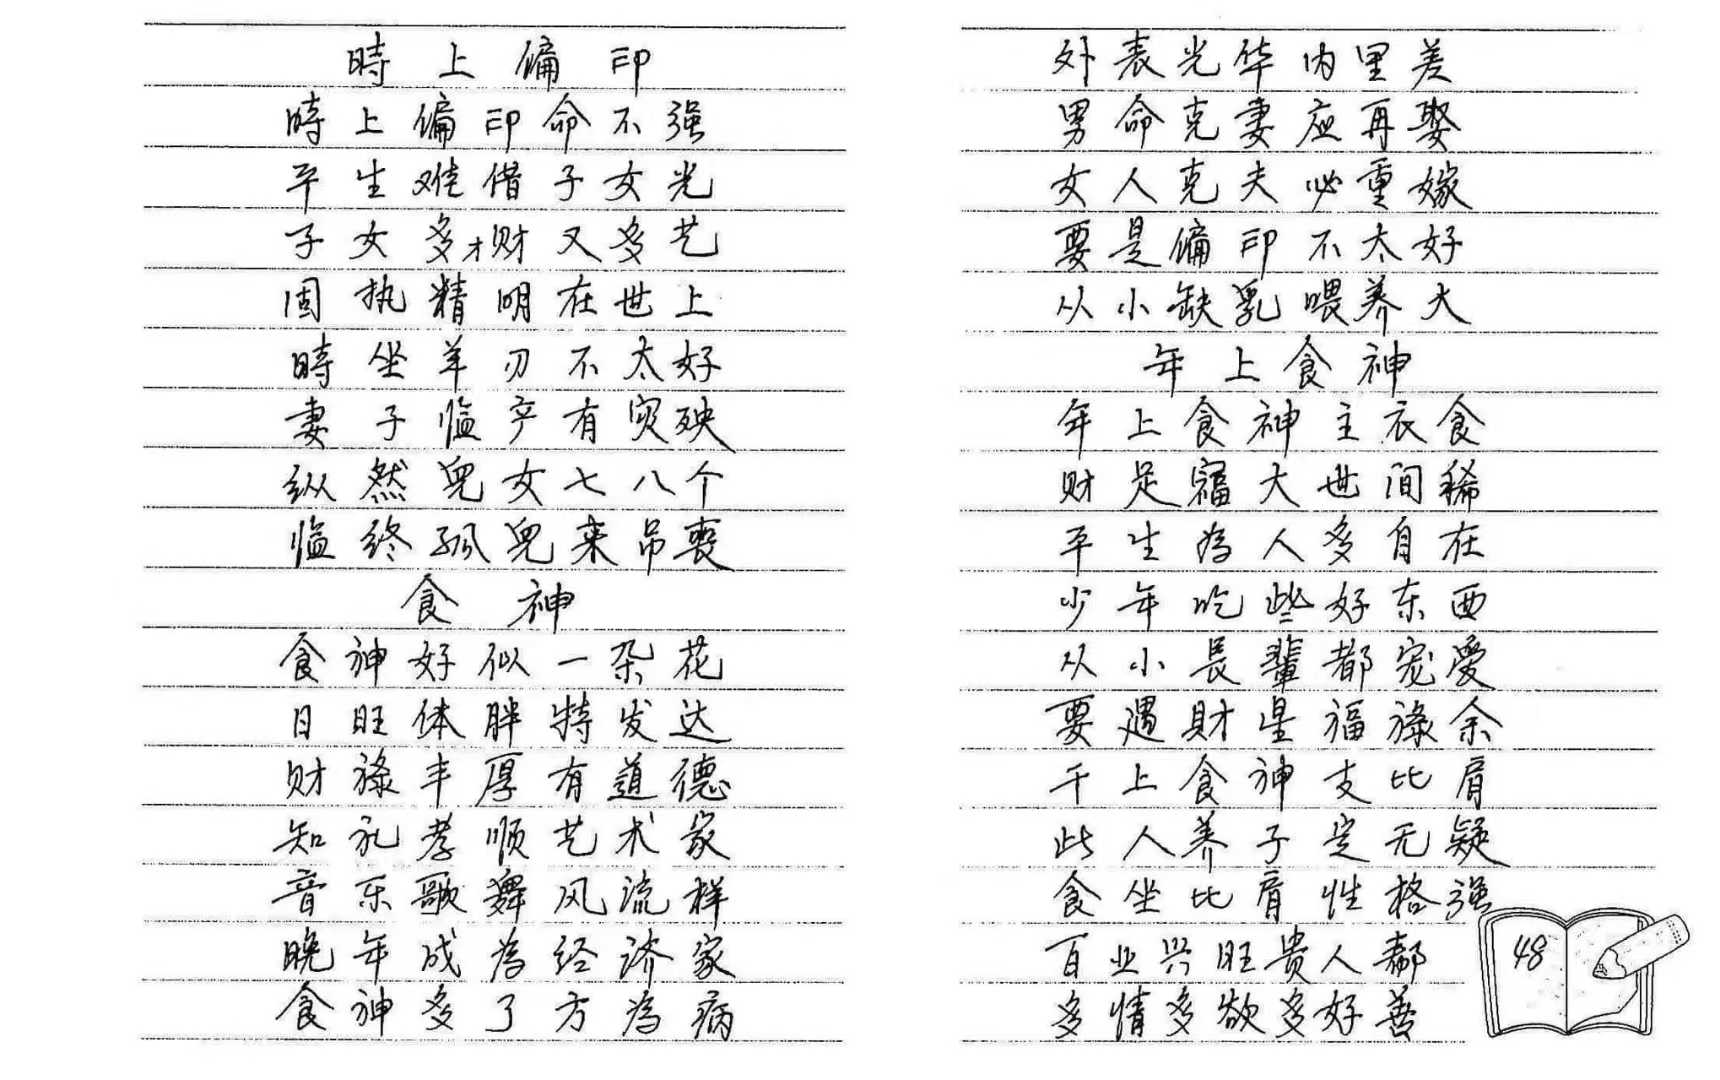 時上偏印
時上偏印命不强
平生难借子女光
子女多才财又多艺
固执精明在世上
時坐羊刃不太好
妻子临产有灾殃
纵然兒女七八个
临终孤兒来吊喪
食神
食神好似一朵花
日旺体胖特发达
财祿丰厚有道德
知礼孝顺艺术家
音乐歌舞风流样
晚年成為经济家
食神多了方為病
外表光华内里差
男命克妻应再娶
女人克夫必重嫁
要是偏印不太好
从小缺乳喂养大
年上食神
年上食神主衣食
财足福大世间稀
平生為人多自在
少年吃些好东西
从小長輩都宠愛
要遇財星福祿余
干上食神支比肩
此人养子定无疑
食坐比肩性格强
百业兴旺贵人
多情多欲多好善
48